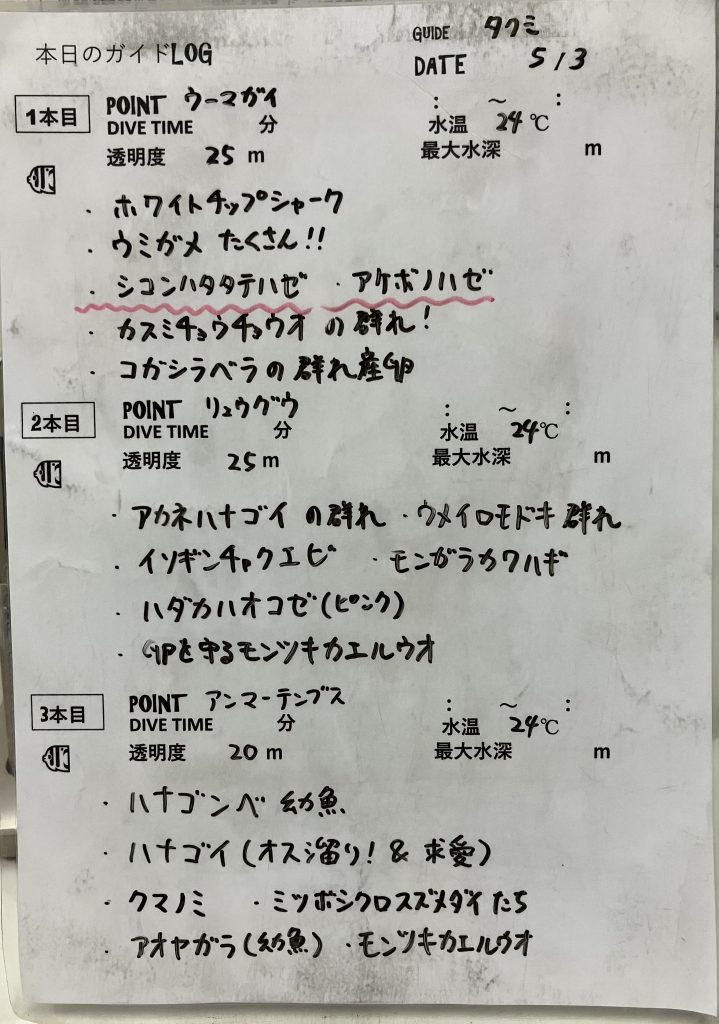 本日のガイドLOG
GUIDE タクミ
DATE 5/3
1本目
POINT ウーマガイ : ～ :
DIVE TIME 分 水温 24℃
透明度 25 m 最大水深 m
・ホワイトチップシャーク
・ウミガメ たくさん!!
・シコンハタタテハゼ ・アケボノハゼ
・カスミチョウチョウオ の群れ!
・コガシラベラの群れ産卵
2本目
POINT リュウグウ : ～ :
DIVE TIME 分 水温 24℃
透明度 25 m 最大水深 m
・アカネハナゴイ の群れ ・ウメイロモドキ 群れ
・イソギンチャクエビ ・モンガラカワハギ
・ハダカハオコゼ(ピンク)
・卵を守るモンツキカエルウオ
3本目
POINT アンマーテンブス : ～ :
DIVE TIME 分 水温 24℃
透明度 20 m 最大水深 m
・ハナゴンベ 幼魚
・ハナゴイ(オス溜り! & 求愛)
・クマノミ ・ミツボシクロスズメダイたち
・アオヤガラ(幼魚) ・モンツキカエルウオ